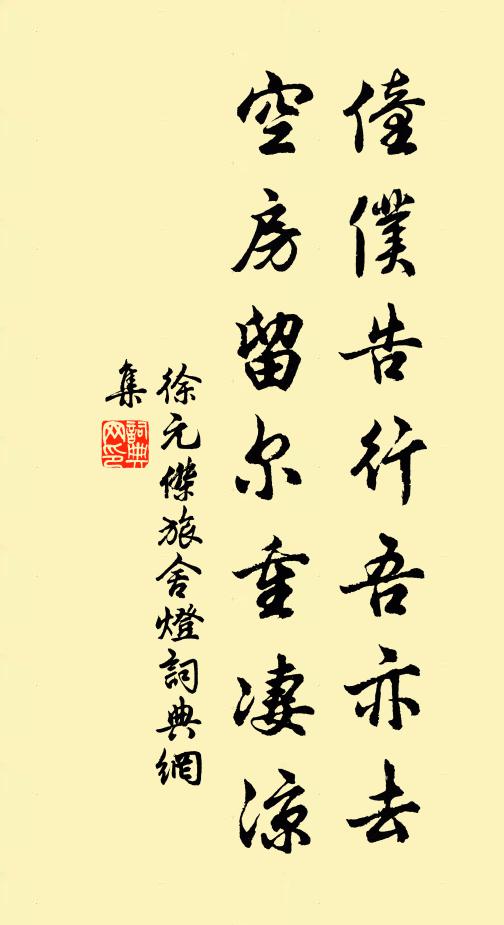 僮僕告行吾亦去
空房留尔重凄凉
徐元傑旅舍燈詞典網
集
詞典
网印